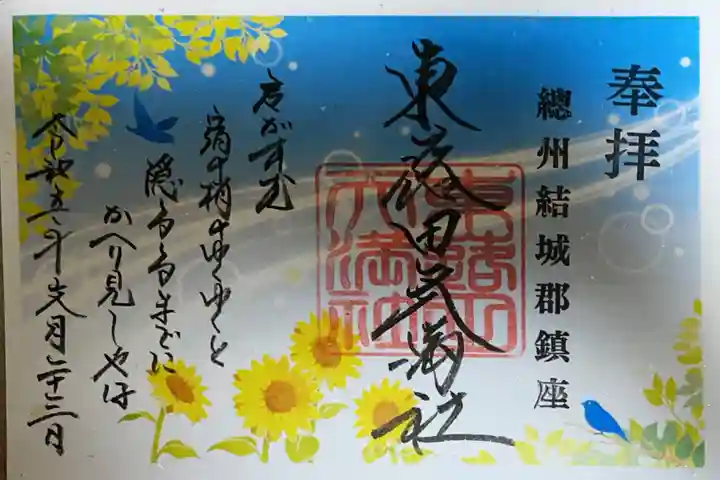 奉拝
總州結城郡鎮座
東蕗田天満社
君がすむ
宿の梢のゆくゆくと
隠るるまでに
かへり見しやは
令和五年文月二十三日
東蕗田
天満社